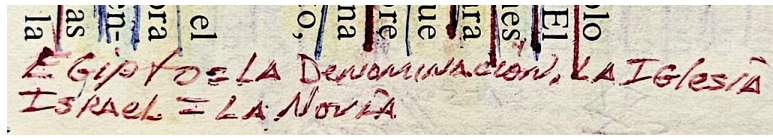 la
as
en-
ora
el
o,
na
re
que
ara
es
El
olo
EGIPTO = LA DENOMINACIÓN. LA IGLESIA
ISRAEL = LA NOVIA